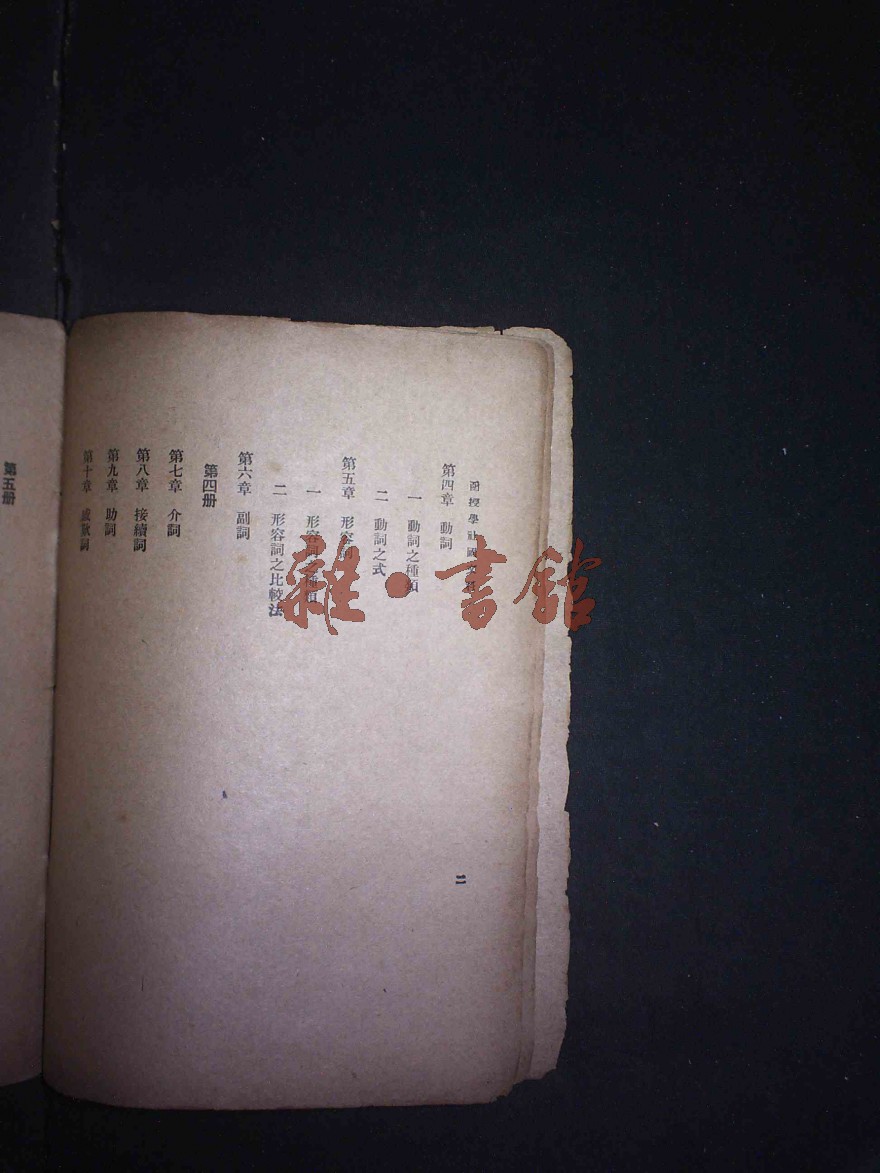 函授學社國文科
第四章 動詞
一 動詞之種類
二 動詞之式
第五章 形容詞
一 形容詞之種類
二 形容詞之比較法
第六章 副詞
第四册
第七章 介詞
第八章 接續詞
第九章 助詞
第十章 感歎詞
二
第五册
雜·書館